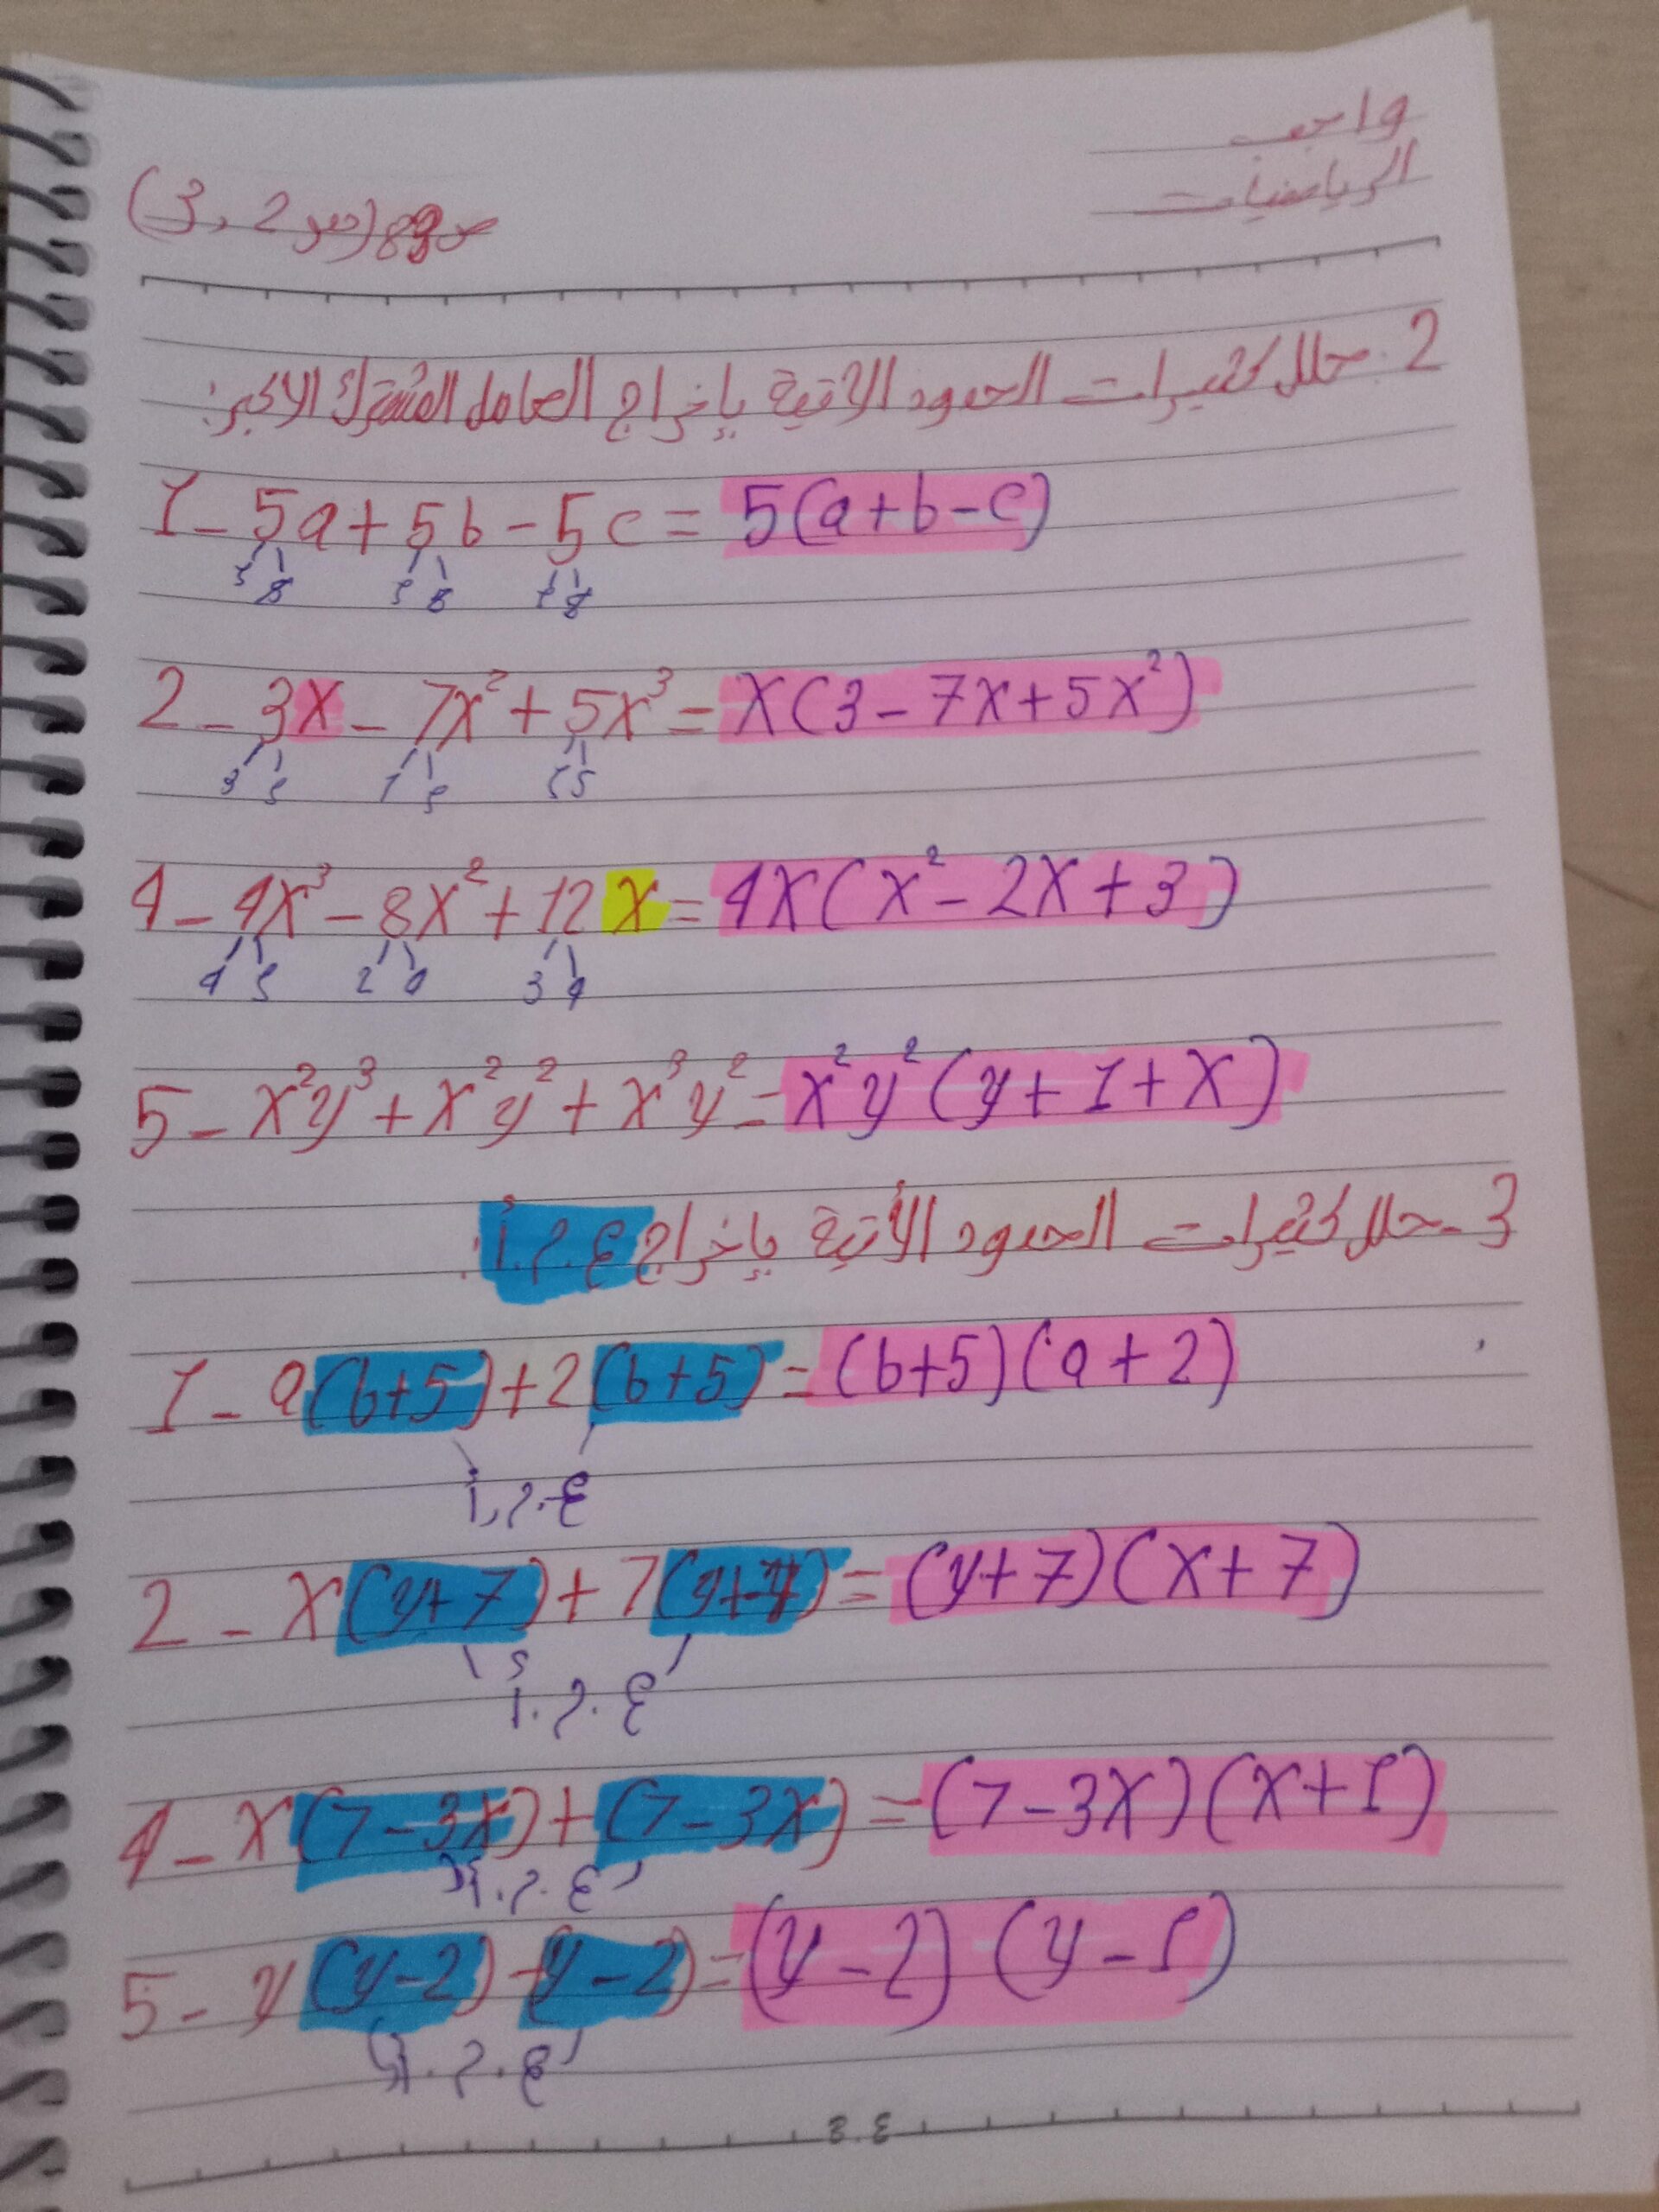 واجب
الرياضيات
ص89 (س2, 3)
2. حلل كثيرات الحدود الاتية بإخراج العامل المشترك الاكبر:
1- 5a + 5b - 5c = 5(a+b-c)
2- 3x - 7x² + 5x³ = x(3-7x+5x²)
3 1
4- 4x³ - 8x² + 12x = 4x(x²-2x+3)
4 1 2 4 3 4
5- x²y³ + x²y² + x³y² = x²y²(y+1+x)
3- حلل كثيرات الحدود الأتية بإخراج ع.م.أ:
1- a(b+5)+2(b+5) = (b+5)(a+2)
ع.م.أ
2- x(y+7)+7(y+7) = (y+7)(x+7)
ع.م.أ
4- x(7-3x)+(7-3x) = (7-3x)(x+1)
ع.م.أ
5- y(y-2)-(y-2) = (y-2)(y-1)
ع.م.أ